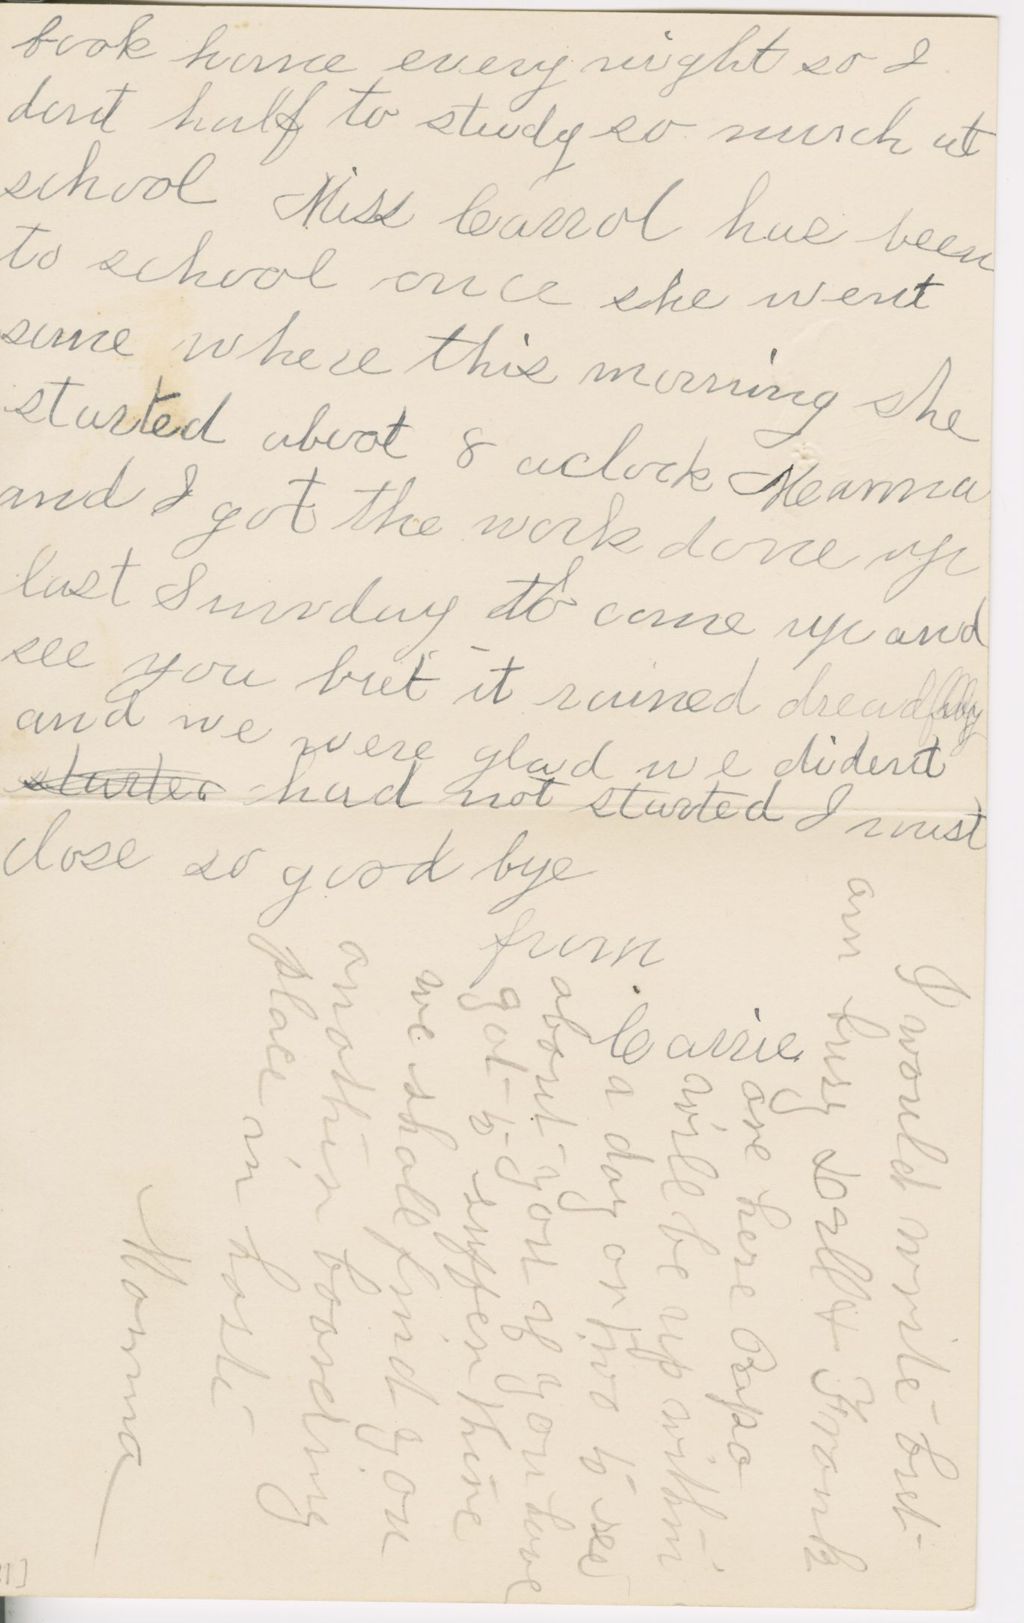 book home every night so I
dont half to study so much at
school Miss Carrol has been
to school once she went
some where this morning she
started about 8 aclock Mamma
and I got the work done up
last Sunday to come up and
see you but it rained dreadfuly
and we were glad we dident
starter had not started I must
close so good bye
from
Carrie
I would write but
am busy Will & Frank
are here Papa
will be up within
a day or two to see
about you if you have
got to suffer there
we shall find you
another boarding
place in haste
Mamma
1]